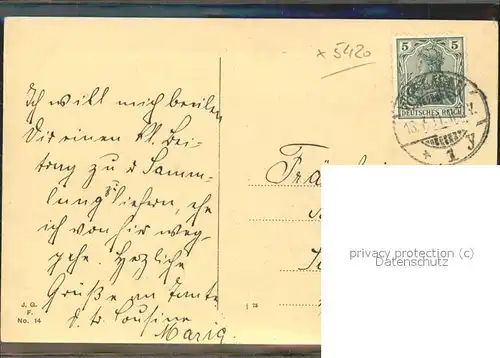 x 5420
5 5
DEUTSCHES REICH
* 1 y
Ich will mich beeilen
Dir einen kl. Bei-
trag zu d Samm-
lung zu liefern, ehe
ich von hier weg-
gehe. Herzliche
Grüße an Tante
d. tr. Cousine
Maria.
Fräu
privacy protection (c)
Datenschutz
J. G.
F.
No. 14